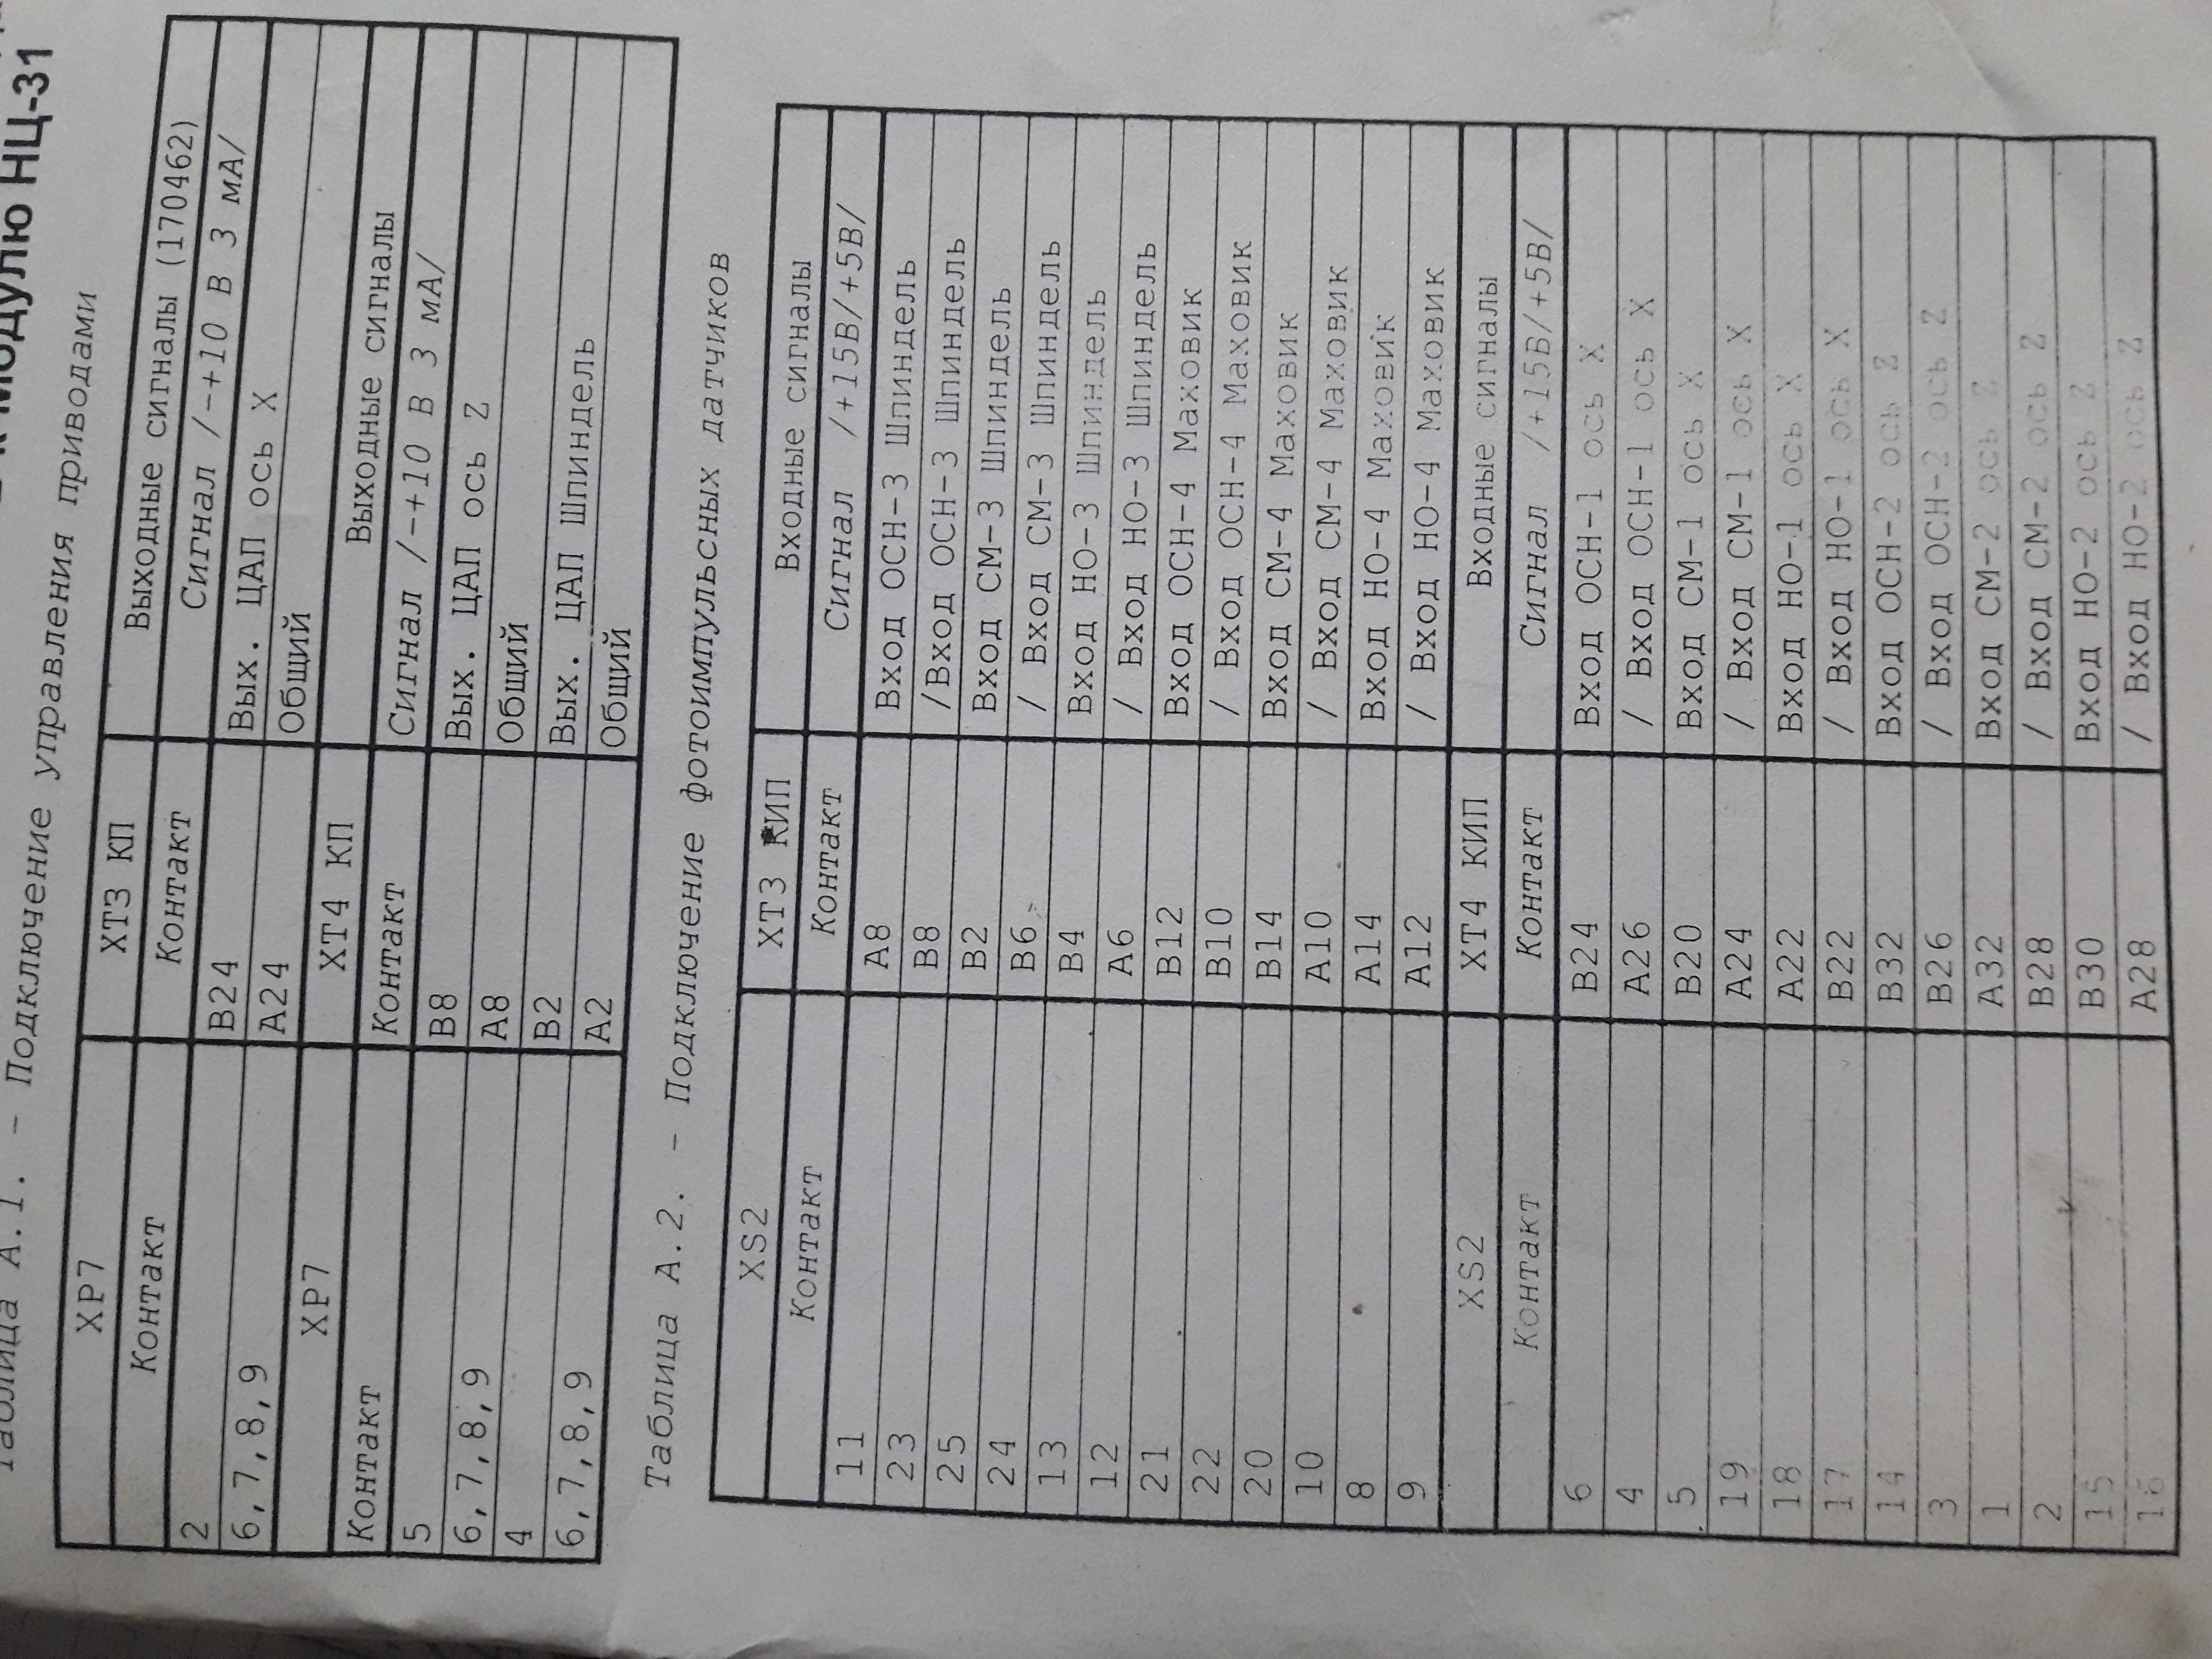 к модулю НЦ-31
Таблица А.1. – Подключение управления приводами
XP7 XT3 КП Выходные сигналы (170462)
Контакт Контакт Сигнал /-+10 В 3 мА/
2 B24 Вых. ЦАП ось X
6,7,8,9 A24 Общий
XP7 XT4 КП Выходные сигналы
Контакт Контакт Сигнал /-+10 В 3 мА/
5 B8 Вых. ЦАП ось Z
6,7,8,9 A8 Общий
4 B2 Вых. ЦАП Шпиндель
6,7,8,9 A2 Общий
Таблица А.2. – Подключение фотоимпульсных датчиков
XS2 XT3 КИП Входные сигналы
Контакт Контакт Сигнал /+15В/+5В/
11 A8 Вход ОСН-3 Шпиндель
23 B8 /Вход ОСН-3 Шпиндель
25 B2 Вход СМ-3 Шпиндель
24 B6 / Вход СМ-3 Шпиндель
13 B4 Вход НО-3 Шпиндель
12 A6 / Вход НО-3 Шпиндель
21 B12 Вход ОСН-4 Маховик
22 B10 / Вход ОСН-4 Маховик
20 B14 Вход СМ-4 Маховик
10 A10 / Вход СМ-4 Маховик
8 A14 Вход НО-4 Маховик
9 A12 / Вход НО-4 Маховик
XS2 XT4 КИП Входные сигналы
Контакт Контакт Сигнал /+15В/+5В/
6 B24 Вход ОСН-1 ось X
4 A26 / Вход ОСН-1 ось X
5 B20 Вход СМ-1 ось X
19 A24 / Вход СМ-1 ось X
18 A22 Вход НО-1 ось X
17 B22 / Вход НО-1 ось X
14 B32 Вход ОСН-2 ось Z
3 B26 / Вход ОСН-2 ось Z
1 A32 Вход СМ-2 ось Z
2 B28 / Вход СМ-2 ось Z
15 B30 Вход НО-2 ось Z
16 A28 / Вход НО-2 ось Z